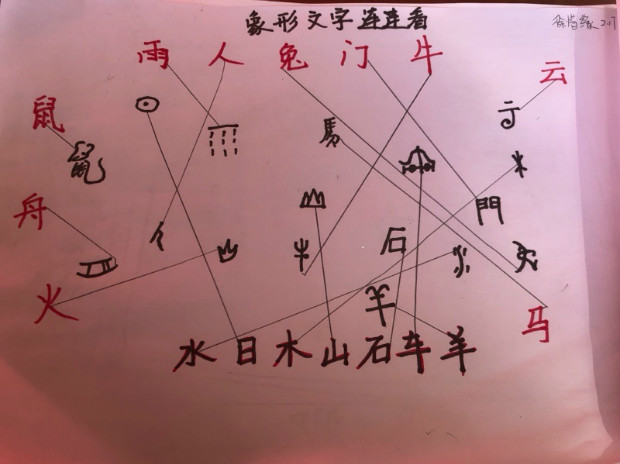 象形文字连连看
雨 人 兔 门 牛 云
鼠
馬
舟
門
石
火
马
水 日 木 山 石 车 羊